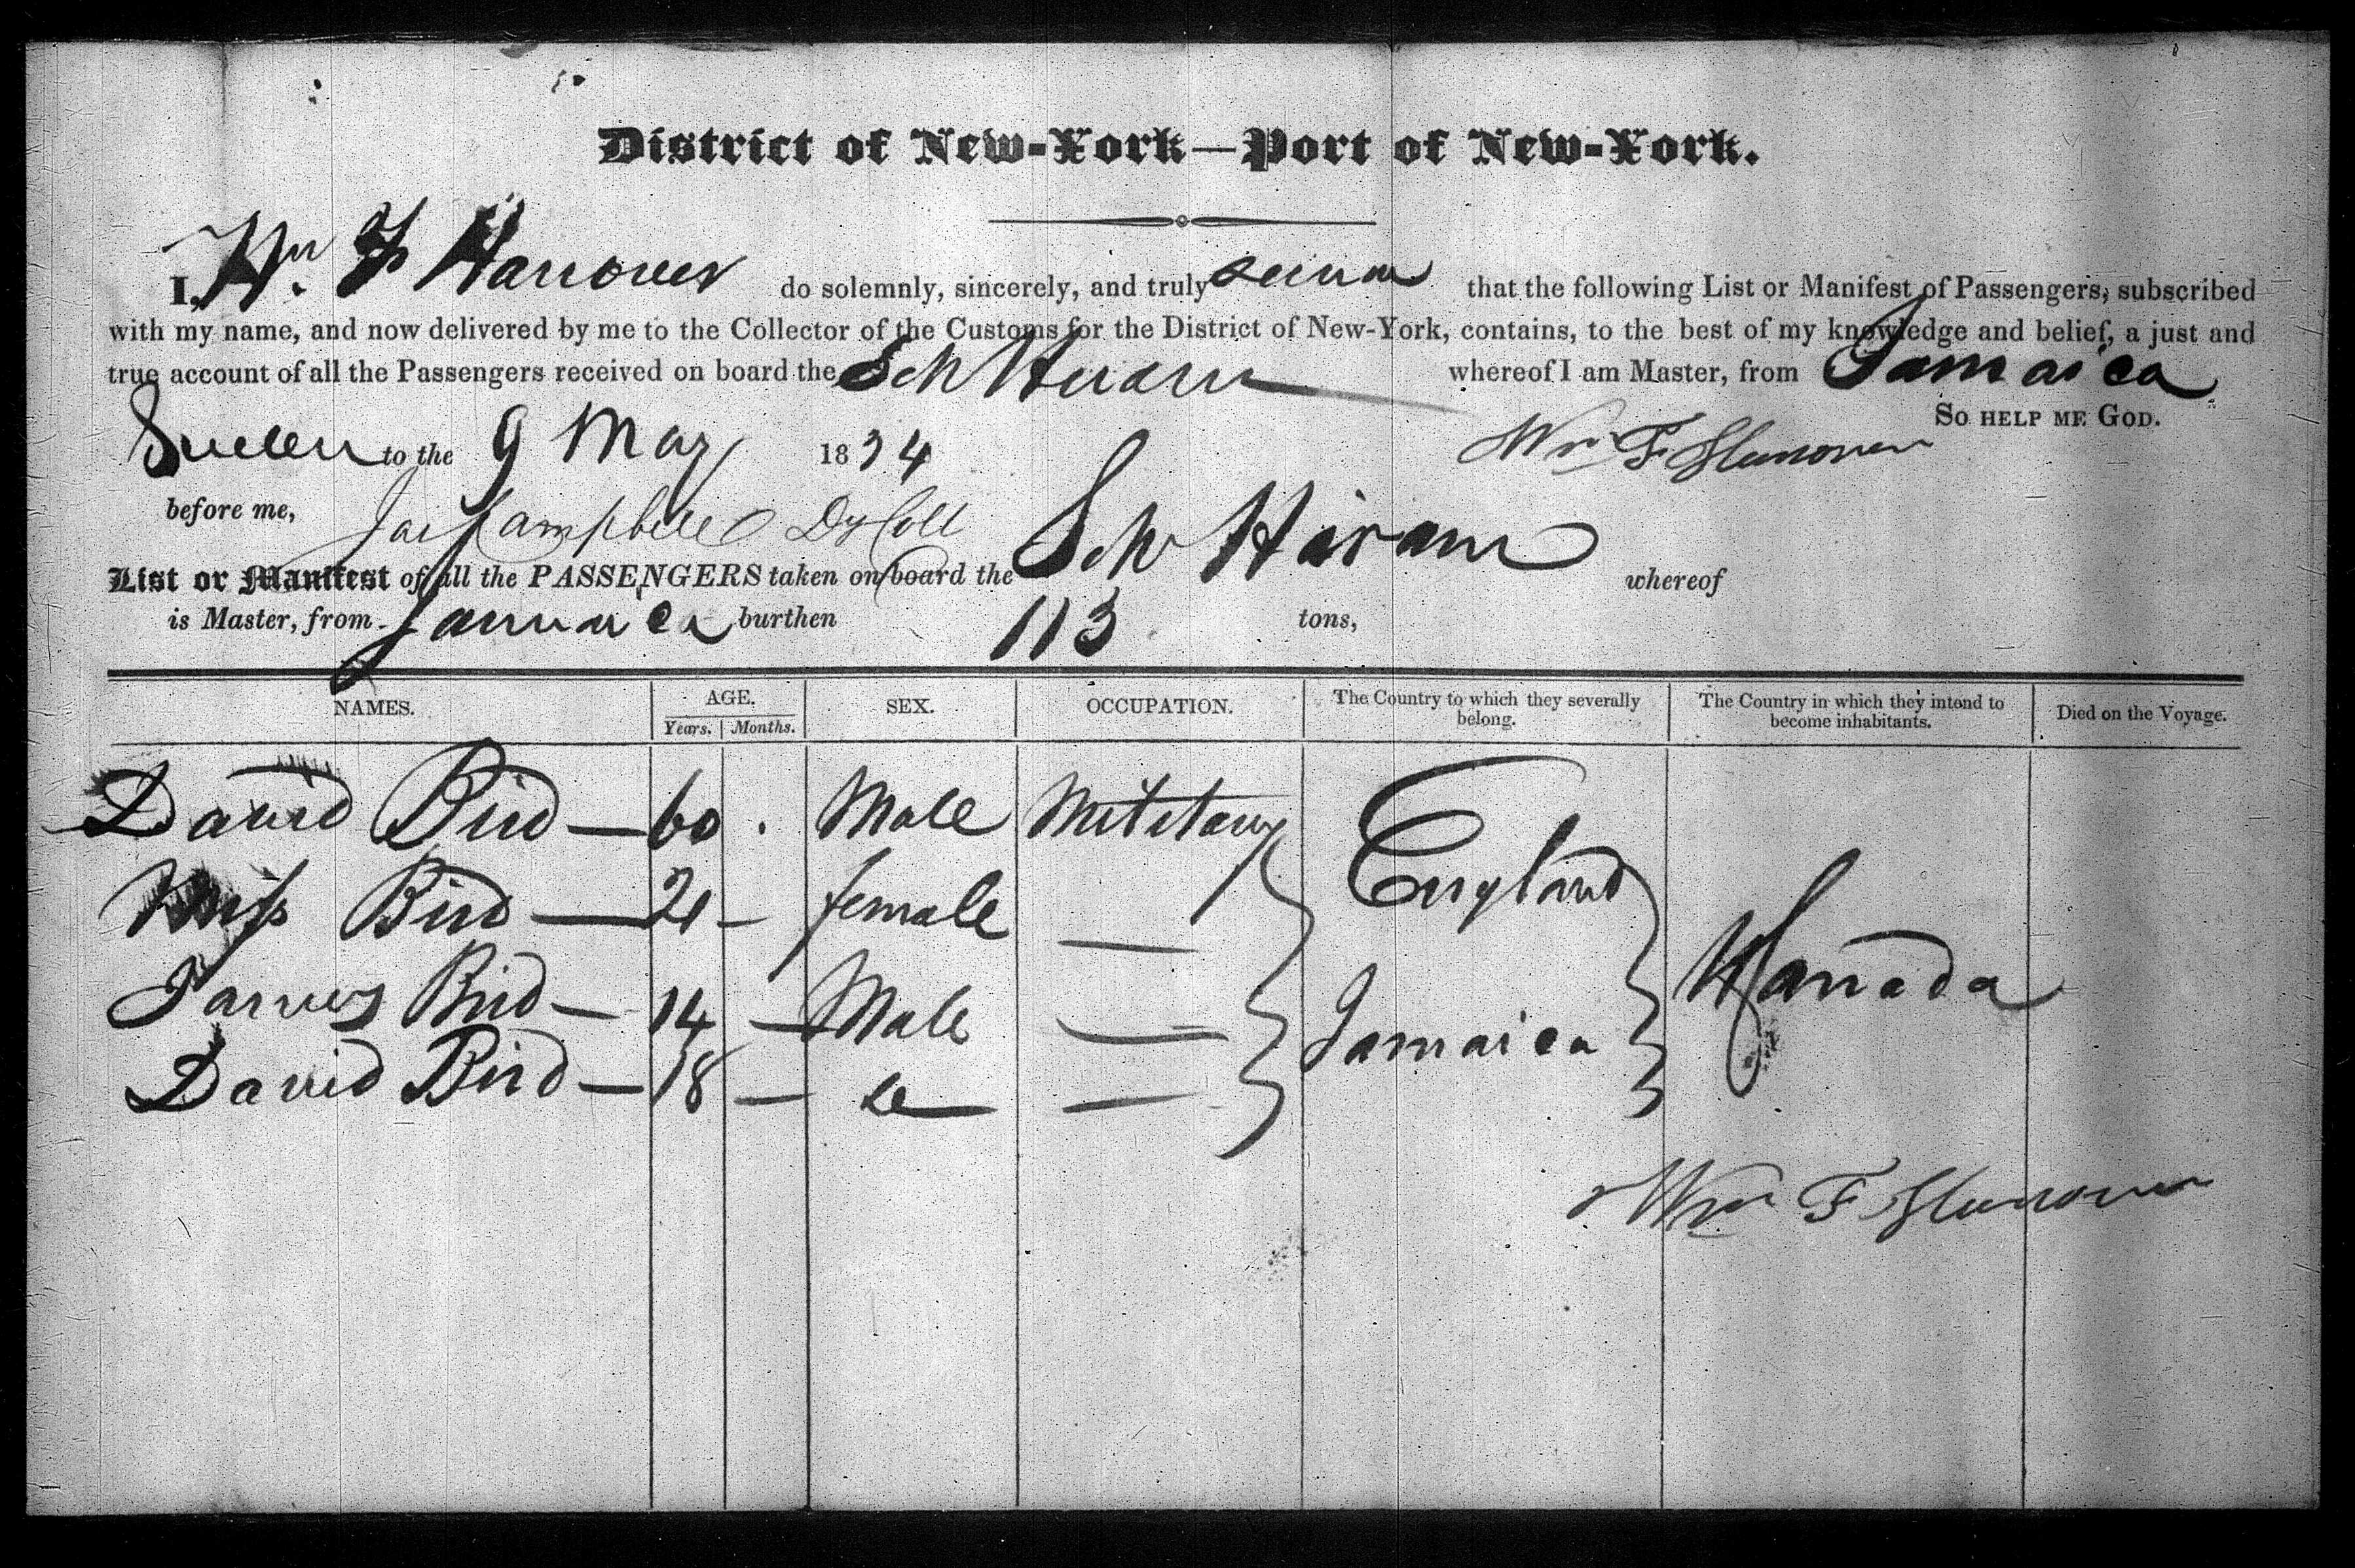 District of New-York—Port of New-York.
I, Wm. F Hanover do solemnly, sincerely, and truly swear that the following List or Manifest of Passengers, subscribed
with my name, and now delivered by me to the Collector of the Customs for the District of New-York, contains, to the best of my knowledge and belief, a just and
true account of all the Passengers received on board the Sch Hiram whereof I am Master, from Jamaica
So help me God.
to the 9 May 1834 Wm F Hanover
before me, Jas Campbell Dy Coll
List or Manifest of all the PASSENGERS taken on board the Sch Hiram whereof
is Master, from Jamaica burthen 113 tons,
NAMES. AGE. Years. Months. SEX. OCCUPATION. The Country to which they severally belong. The Country in which they intend to become inhabitants. Died on the Voyage.
David Bird — 60 . Male Military England
Miss Bird — 21 — female —
James Bird — 14 — Male — Jamaica Canada
David Bird — 18 — do —
Wm F Hanover